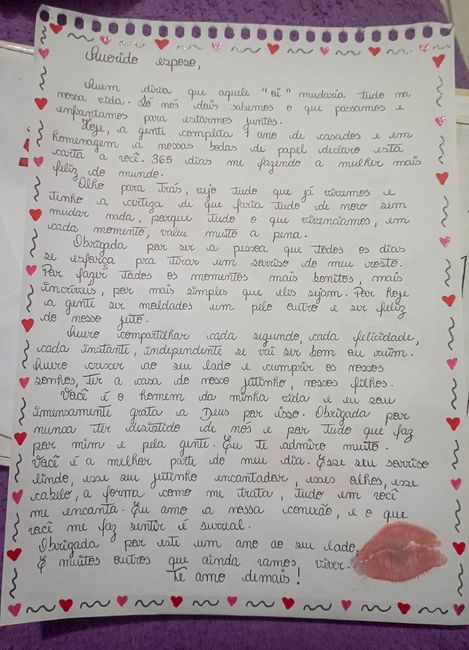 Querido esposo,
Quem diria que aquele "oi" mudaria tudo na
nossa vida. Só nós dois sabemos o que passamos e
enfrentamos para estarmos juntos.
Hoje, a gente completa 1 ano de casados e em
homenagem a nossas bodas de papel declaro esta
carta a você. 365 dias me fazendo a mulher mais
feliz do mundo.
Olho para trás, vejo tudo que já vivemos e
tenho a certeza de que faria tudo de novo sem
mudar nada, porque tudo o que vivenciamos, em
cada momento, valeu muito a pena.
Obrigada por ser a pessoa que todos os dias
se esforça pra tirar um sorriso do meu rosto.
Por fazer todos os momentos mais bonitos, mais
incríveis, por mais simples que eles sejam. Por hoje
a gente ser moldados um pelo outro e ser feliz
do nosso jeito.
Quero compartilhar cada segundo, cada felicidade,
cada instante, independente se vai ser bom ou ruim.
Quero crescer ao seu lado e cumprir os nossos
sonhos, ter a casa do nosso jeitinho, nossos filhos.
Você é o homem da minha vida e eu sou
imensamente grata a Deus por isso. Obrigada por
nunca ter desistido de nós e por tudo que faz
por mim e pela gente. Eu te admiro muito.
Você é a melhor parte do meu dia. Esse seu sorriso
lindo, esse seu jeitinho encantador, esses olhos, esse
cabelo, a forma como me trata, tudo em você
me encanta. Eu amo a nossa conexão, e o que
você me faz sentir é surreal.
Obrigada por este um ano ao seu lado.
E muitos outros que ainda vamos viver.
Te amo demais!